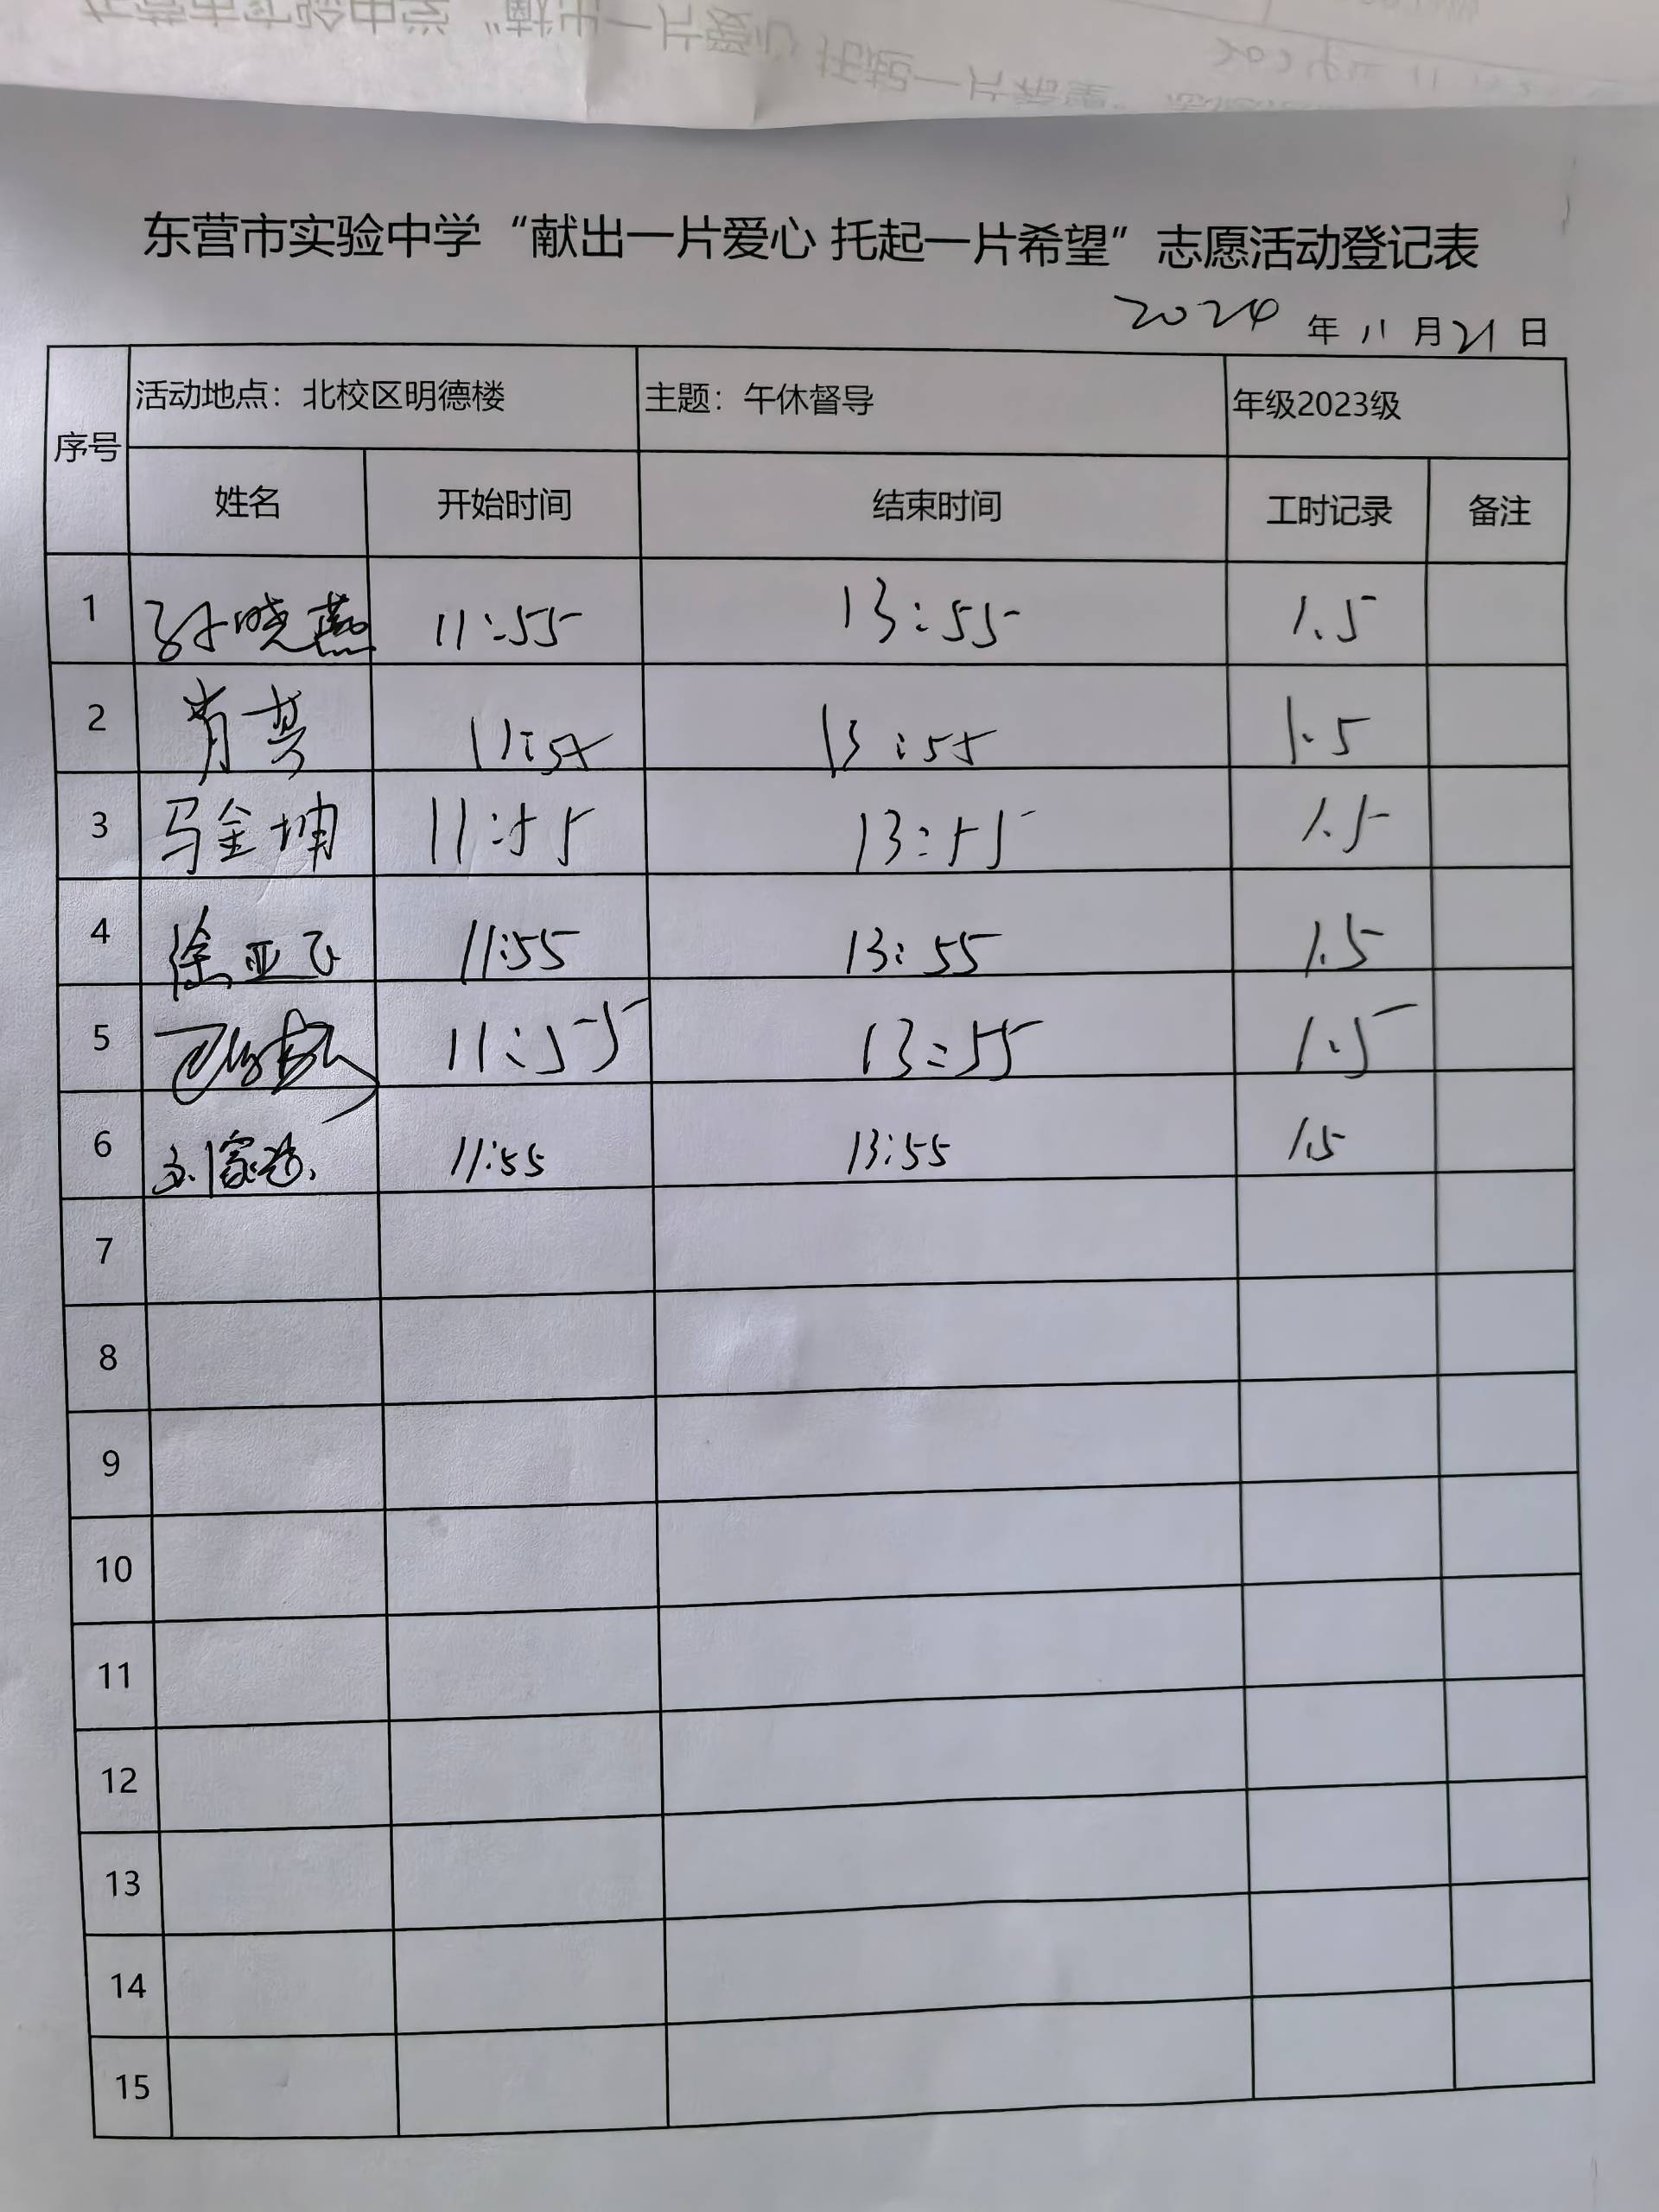 东营市实验中学“献出一片爱心 托起一片希望”志愿活动登记表
2024 年 11 月 21 日
序号 活动地点：北校区明德楼 主题：午休督导 年级2023级
姓名 开始时间 结束时间 工时记录 备注
1 孙晓燕 11:55 13:55 1.5
2 肖 11:55 13:55 1.5
3 马金坤 11:55 13:55 1.5
4 徐亚飞 11:55 13:55 1.5
5 11:55 13:55 1.5
6 刘家 11:55 13:55 1.5
7
8
9
10
11
12
13
14
15